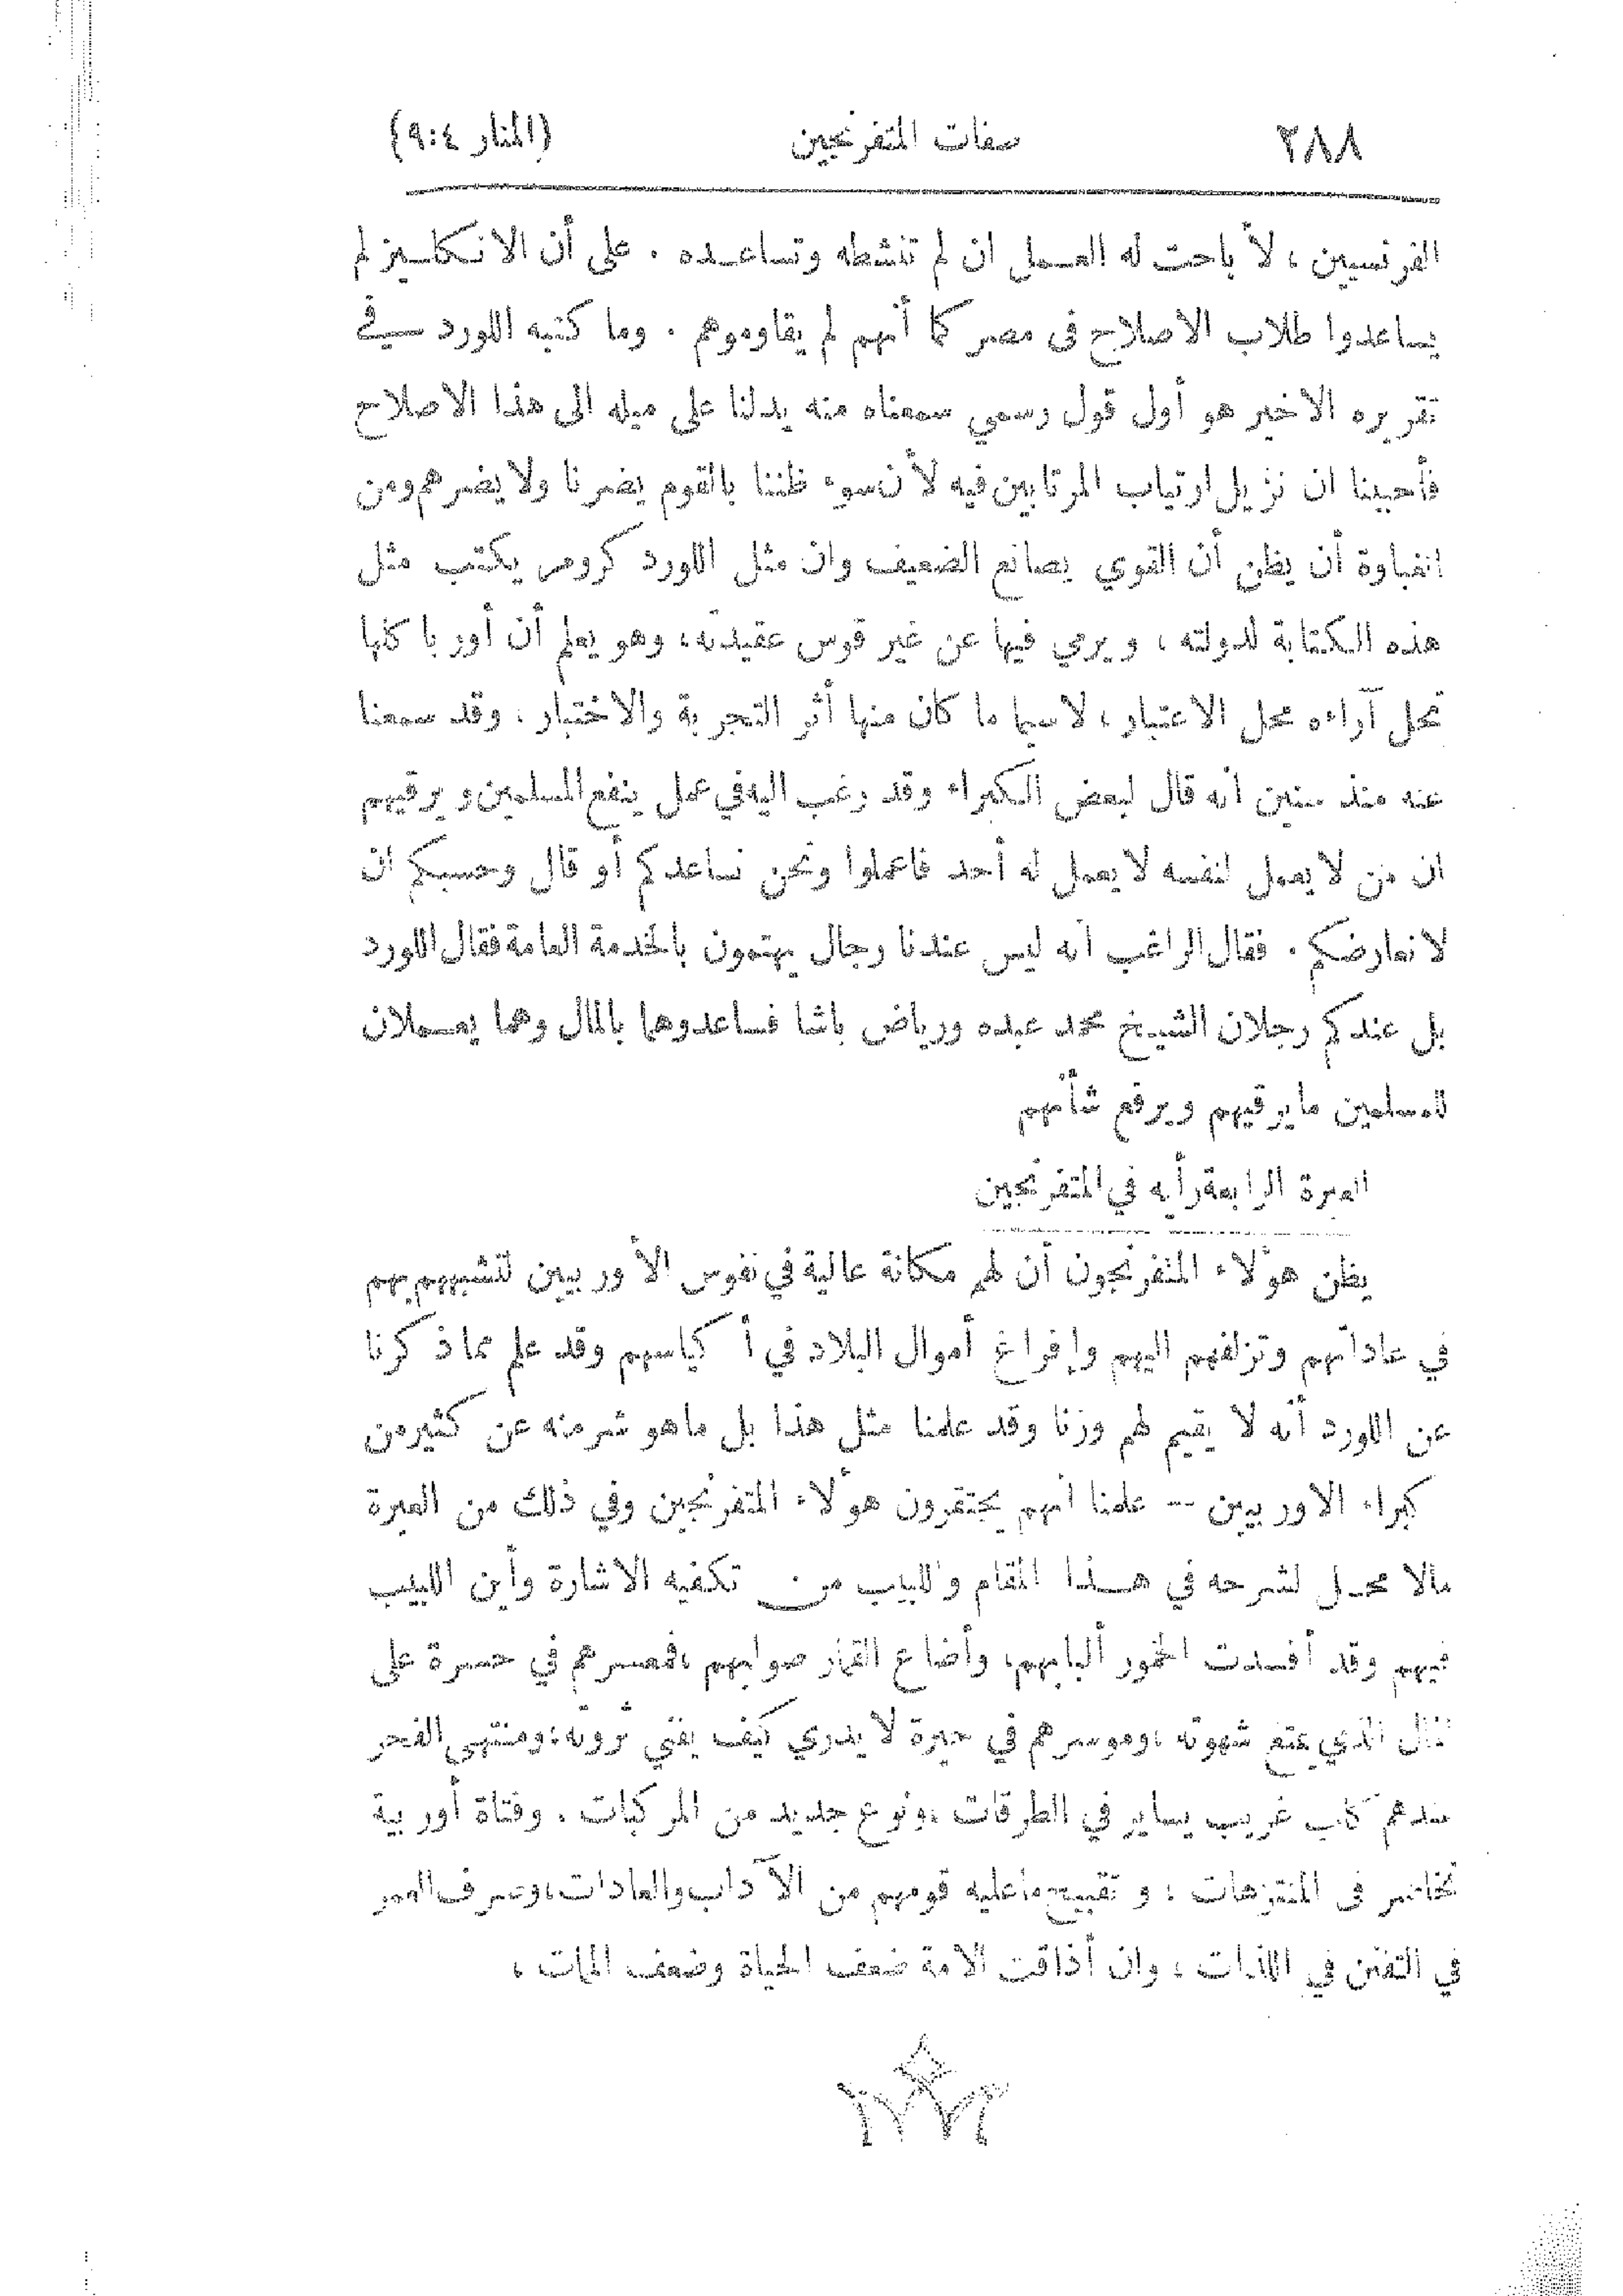 ٢٨٨ صفات المتفرنجين (المنار ٤:٩)
الفرنسيين، لأباحت له العمل ان لم تنشطه وتساعده . على أن الانكليز لم
يساعدوا طلاب الاصلاح في مصر كما أنهم لم يقاوموهم . وما كتبه اللورد في
تقريره الاخير هو أول قول رسمي سمعناه منه يدلنا على ميله الى هذا الاصلاح
فأحببنا ان نزيل ارتياب المرتابين فيه لأن سوء ظننا بالقوم يضرنا ولا يضرهم ومن
الغباوة أن يظن أن القوي يصانع الضعيف وان مثل اللورد كرومر يكتب مثل
هذه الكتابة لدولته ، ويرمي فيها عن غير قوس عقيدته، وهو يعلم أن أوربا كلها
تحل آراءه محل الاعتبار، لاسيما ما كان منها أثر التجربة والاختبار. وقد سمعنا
عنه منذ سنين انه قال لبعض الكبراء وقد رغب اليه في عمل ينفع المسلمين ويرقيهم
ان من لا يعمل لنفسه لا يعمل له أحد فاعملوا ونحن نساعدكم أو قال وحسبكم ان
لا نعارضكم . فقال الراغب انه ليس عندنا رجال يهتمون بالخدمة العامة فقال اللورد
بل عندكم رجلان الشيخ محمد عبده ورياض باشا فساعدوهما بالمال وهما يعملان
للمسلمين ما يرقيهم ويرفع شأنهم
العبرة الرابعة رأيه في المتفرنجين
يظن هؤلاء المتفرنجون أن لهم مكانة عالية في نفوس الأوربيين لتشبههم بهم
في عاداتهم وتزلفهم اليهم وإفراغ أموال البلاد في أكياسهم وقد علم مما ذكرنا
عن اللورد أنه لا يقيم لهم وزنا وقد علمنا مثل هذا بل ما هو شر منه عن كثير من
كبراء الاوربيين -- علمنا أنهم يحتقرون هؤلاء المتفرنجين وفي ذلك من العبرة
مالا محل لشرحه في هذا المقام واللبيب من تكفيه الاشارة وأين اللبيب
فيهم وقد أفسدت الخمور ألبابهم، وأضاع القمار صوابهم ،فمعسرهم في حسرة على
المال الذي يمتع شهوته ،وموسرهم في حيرة لا يدري كيف يفني ثروته،ومنتهى الفخر
عندهم كلب غريب يساير في الطرقات ،ونوع جديد من المركبات . وفتاة أوربية
تخاصر في المنتزهات ، و تقبيح ما عليه قومهم من الآداب والعادات،وصرف العمر
في التفنن في اللذات ، وان أذاقت الامة ضعف الحياة وضعف الممات ،